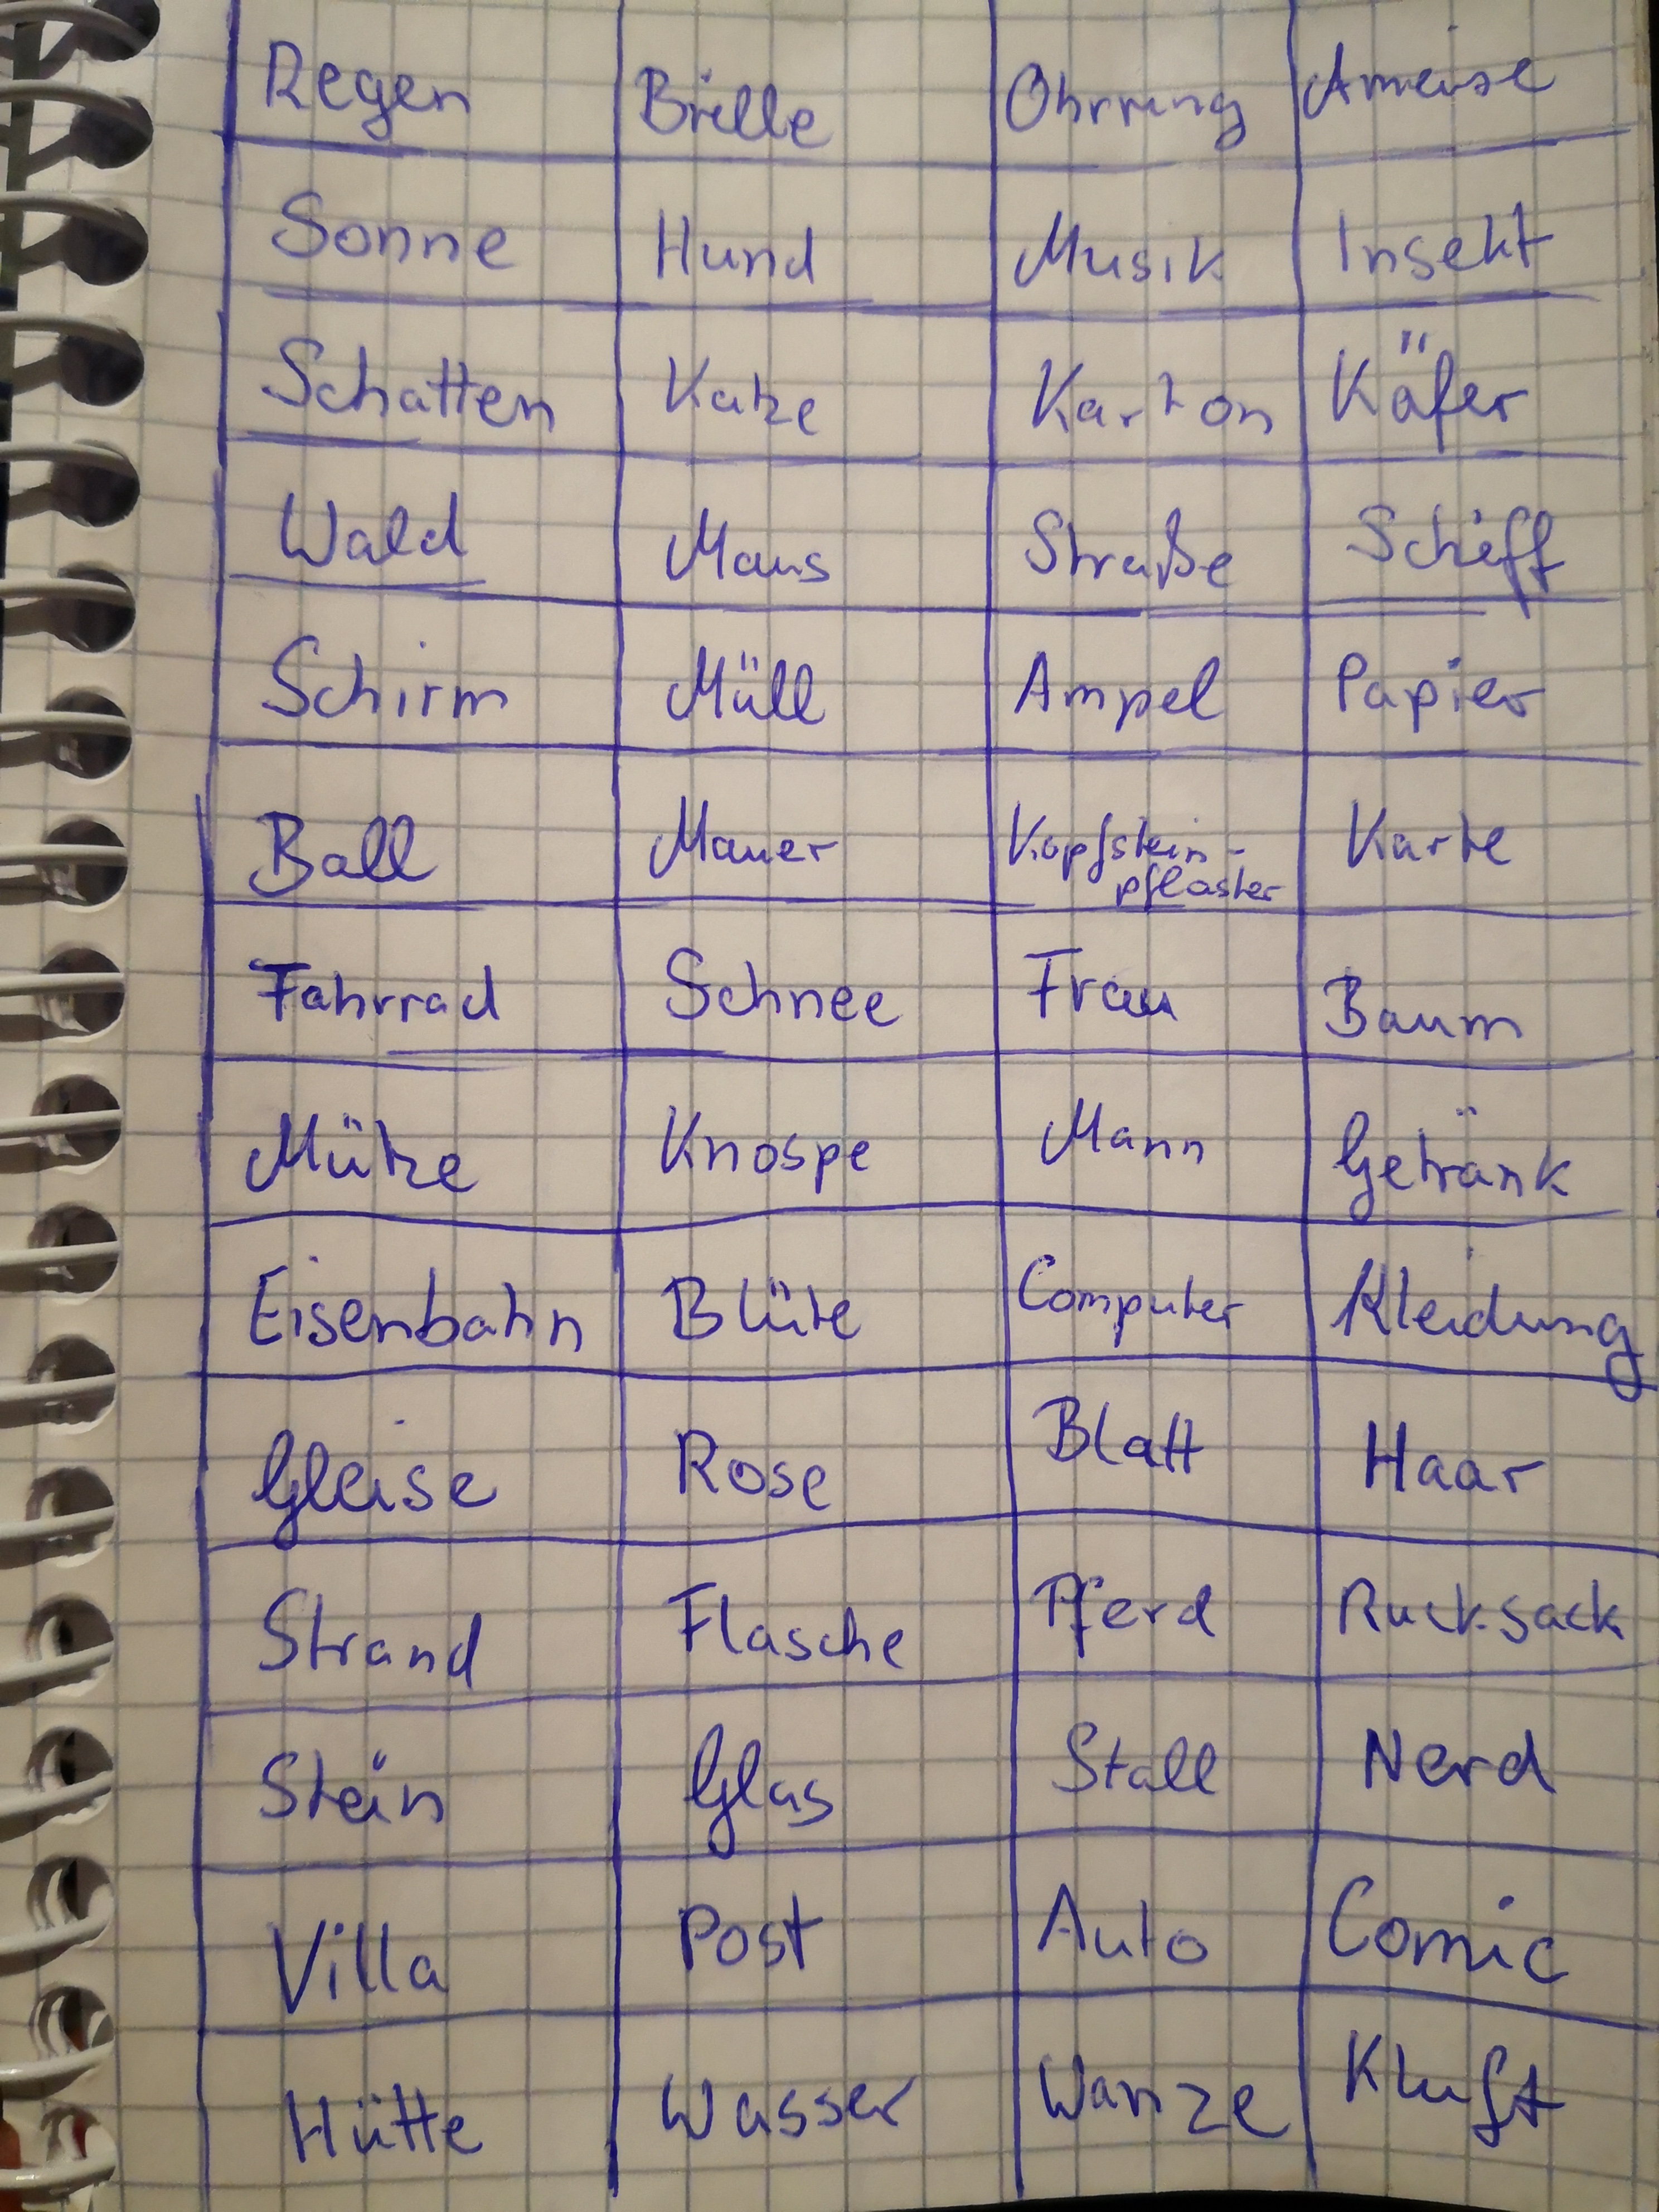 Regen Brille Ohrring Ameise
Sonne Hund Musik Insekt
Schatten Katze Karton Käfer
Wald Maus Straße Schiff
Schirm Müll Ampel Papier
Ball Mauer Kopfstein- Karte
pflaster
Fahrrad Schnee Frau Baum
Mütze Knospe Mann Getränk
Eisenbahn Blüte Computer Kleidung
Gleise Rose Blatt Haar
Strand Flasche Pferd Rucksack
Stein Glas Stall Nerd
Villa Post Auto Comic
Hütte Wasser Wanze Kluft